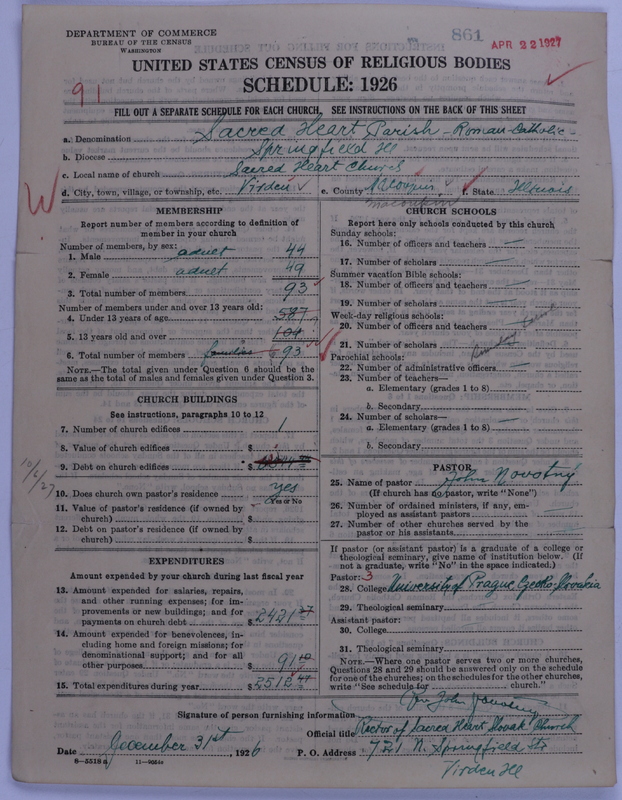 DEPARTMENT OF COMMERCE
BUREAU OF THE CENSUS
WASHINGTON
861
APR 22 1927
UNITED STATES CENSUS OF RELIGIOUS BODIES
SCHEDULE: 1926
91
FILL OUT A SEPARATE SCHEDULE FOR EACH CHURCH. SEE INSTRUCTIONS ON THE BACK OF THIS SHEET
a. Denomination Sacred Heart Parish - Roman-Catholic-
b. Diocese Springfield Ill
c. Local name of church Sacred Heart Church
d. City, town, village, or township, etc. Virden e. County Macoupin f. State Illinois
Macoupin
MEMBERSHIP
Report number of members according to definition of
member in your church
Number of members, by sex:
1. Male adult 44
2. Female adult 49
3. Total number of members 93
Number of members under and over 13 years old:
4. Under 13 years of age
5. 13 years old and over 104
6. Total number of members families 93
NOTE.—The total given under Question 6 should be the
same as the total of males and females given under Question 3.
CHURCH BUILDINGS
See instructions, paragraphs 10 to 12
7. Number of church edifices 1
8. Value of church edifices $
9. Debt on church edifices $
10/6/27
10. Does church own pastor's residence yes
Yes or No
11. Value of pastor's residence (if owned by
church) $
12. Debt on pastor's residence (if owned by
church) $
EXPENDITURES
Amount expended by your church during last fiscal year
13. Amount expended for salaries, repairs,
and other running expenses; for im-
provements or new buildings; and for
payments on church debt $ 2421.37
14. Amount expended for benevolences, in-
cluding home and foreign missions; for
denominational support; and for all
other purposes $ 91.10
15. Total expenditures during year $ 2512.47
CHURCH SCHOOLS
Report here only schools conducted by this church
Sunday schools:
16. Number of officers and teachers —
17. Number of scholars —
Summer vacation Bible schools:
18. Number of officers and teachers —
19. Number of scholars —
Week-day religious schools:
20. Number of officers and teachers —
21. Number of scholars —
Parochial schools:
22. Number of administrative officers —
23. Number of teachers—
a. Elementary (grades 1 to 8)
b. Secondary
24. Number of scholars—
a. Elementary (grades 1 to 8)
b. Secondary
PASTOR
25. Name of pastor John Novotný
(If church has no pastor, write "None")
26. Number of ordained ministers, if any, em-
ployed as assistant pastors —
27. Number of other churches served by the
pastor or his assistants —
If pastor (or assistant pastor) is a graduate of a college or
theological seminary, give name of institution below. (If
not a graduate, write "No" in the space indicated.)
Pastor: 3
28. College University of Prague Czecho-Slovakia
29. Theological seminary
Assistant pastor:
30. College
31. Theological seminary
NOTE.—Where one pastor serves two or more churches,
Questions 28 and 29 should be answered only on the schedule
for one of the churches; on the schedules for the other churches,
write "See schedule for church."
Signature of person furnishing information John Novotný
Official title Rector of Sacred Heart Slovak Church
Date December 31st, 1926 P. O. Address 721 N. Springfield Str
Virden Ill
8—5518a 11—9054a